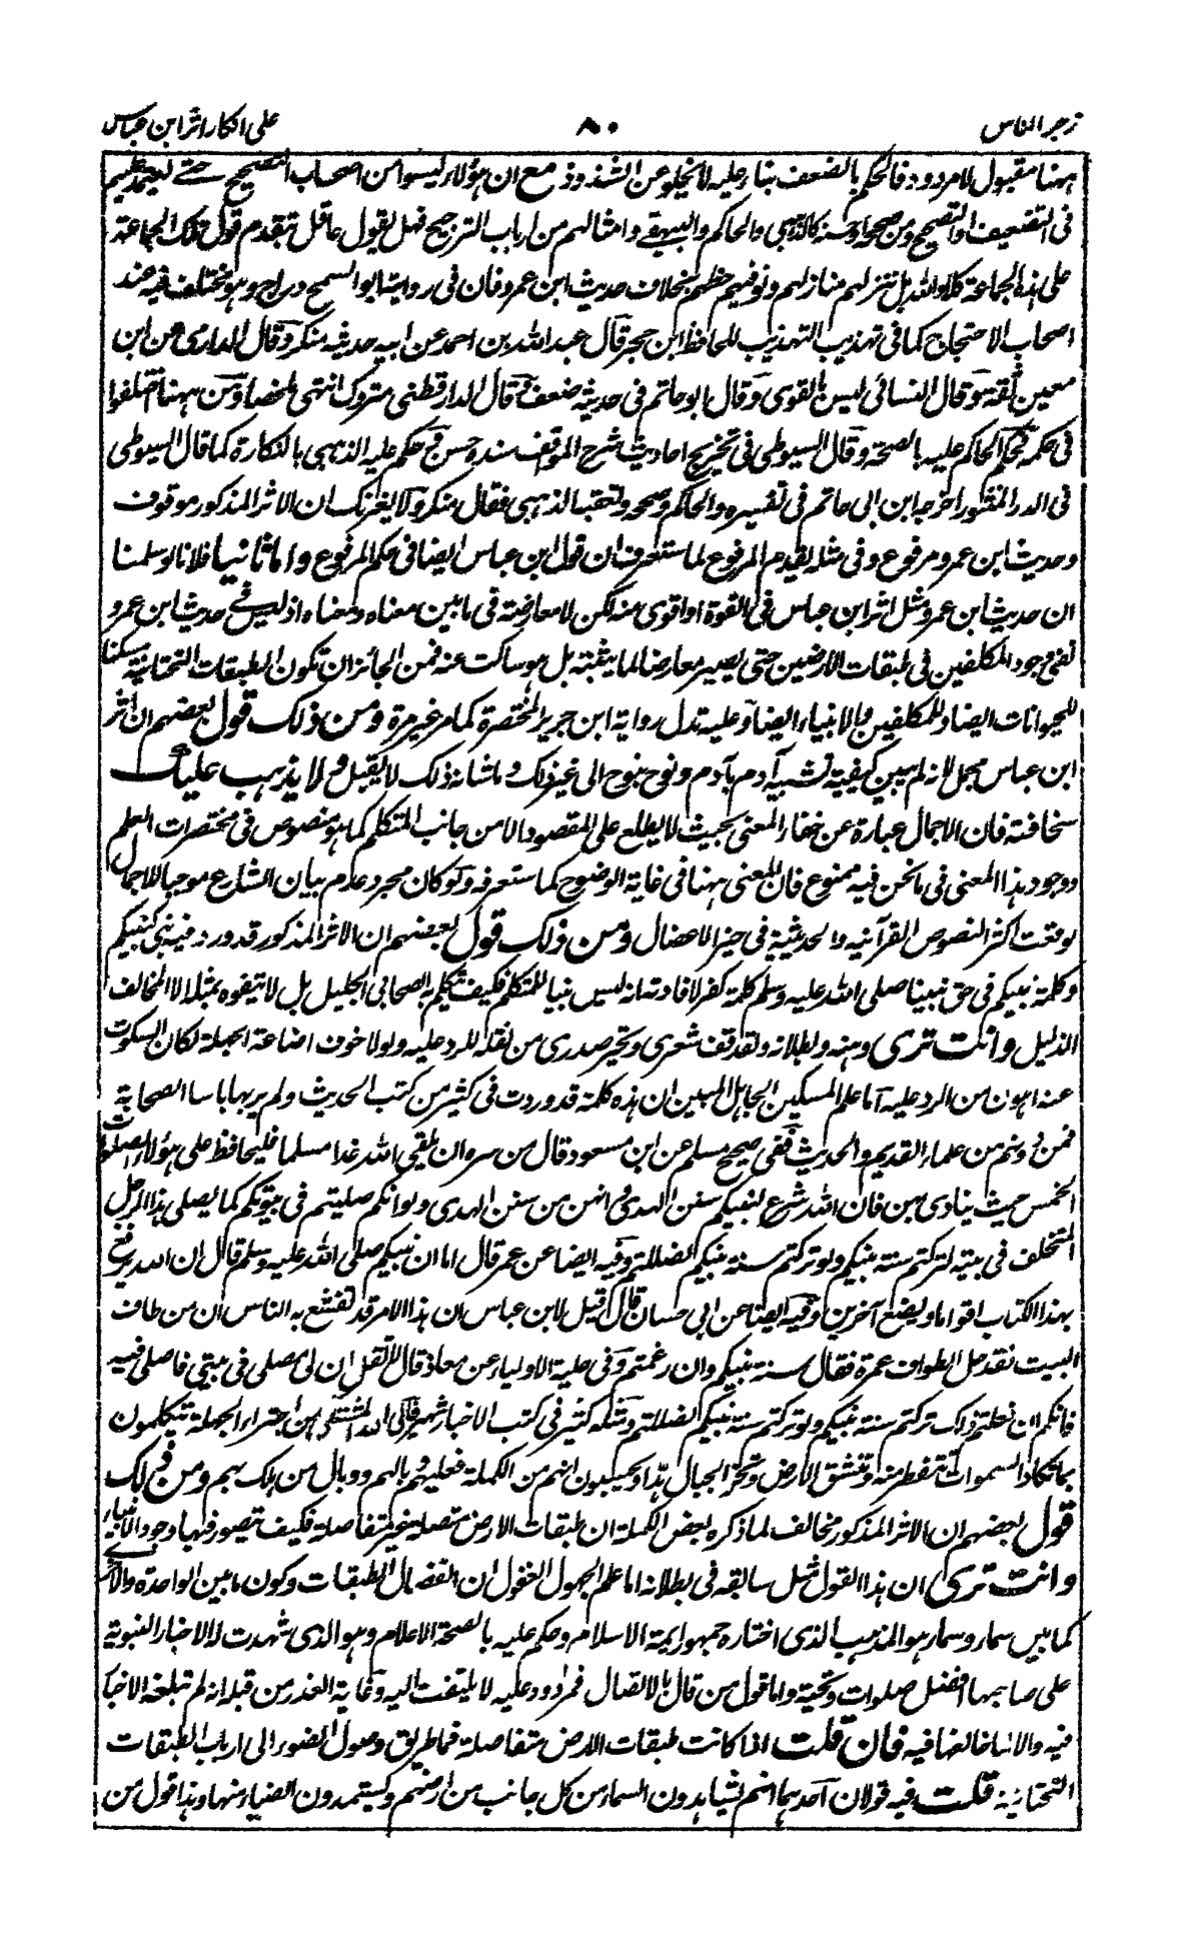 زجر الناس ٨٠ على انكار اثر ابن عباس
ههنا مقبول لا مردود فالحكم بالضعف بناء عليه لا يخلو عن الشذوذ مع ان هؤلاء ليسوا من اصحاب التصحيح حتى يعتمد عليهم
فى التضعيف والتصحيح ومن صححه او حسنه كالذهبى والحاكم والبيهقى وامثالهم من ارباب الترجيح فهل يقول عاقل بتقدم قول تلك الجماعة
على هذه الجماعة كلا والله بل ننزلهم منازلهم ونوفيهم حظهم بخلاف حديث ابن عمرو فان فى روايته ابو السمح دراج وهو مختلف فيه عند
اصحاب الاحتجاج كما فى تهذيب التهذيب للحافظ ابن حجر قال عبد الله بن احمد عن ابيه حديثه منكر وقال الدارمى عن ابن
معين ثقة وقال النسائى ليس بالقوى وقال ابو حاتم فى حديثه ضعف وقال الدارقطنى متروك انتهى ملخصا ومن ههنا اختلفوا
فى حكمه فحكم الحاكم عليه بالصحة وقال السيوطى فى تخريج احاديث شرح المواقف سنده حسن وحكم عليه الذهبى بالنكارة كما قال السيوطى
فى الدر المنثور اخرجه ابن ابى حاتم فى تفسيره والحاكم وصححه وتعقبه الذهبى فقال منكر ولا يغرنك ان الاثر المذكور موقوف
وحديث ابن عمرو مرفوع وفى مثله يقدم المرفوع لما ستعرف ان قول ابن عباس ايضا فى حكم المرفوع واما ثانيا فلانا لو سلمنا
ان حديث ابن عمرو مثل اثر ابن عباس فى القوة او اقوى منه لكن لا معارضة فى ما بين معناه ومعناه اذ ليس فى حديث ابن عمرو
نفى وجود المكلفين فى طبقات الارضين حتى يصير معارضا لما يثبته بل هو ساكت عنه فمن الجائز ان تكون الطبقات التحتانية مسكنا
للحيوانات ايضا وللمكلفين والانبياء ايضا وعليه تدل رواية ابن جرير المختصرة كما مر غير مرة ومن ذلك قول بعضهم ان اثر
ابن عباس مجمل لانه لم يبين كيفية تشبيه آدم بآدم ونوح بنوح الى غير ذلك وما شانه ذلك لا يقبل ولا يذهب عليك
سخافته فان الاجمال عبارة عن خفاء المعنى بحيث لا يطلع على المقصود الا من جانب المتكلم كما هو منصوص فى مختصرات العلم
ووجود هذا المعنى فى ما نحن فيه ممنوع فان المعنى ههنا فى غاية الوضوح كما ستعرفه ولو كان مجرد عدم بيان الشارع موجبا للاجمال
لوقعت اكثر النصوص القرآنيه والحديثية فى حيز الاعضال ومن ذلك قول بعضهم ان الاثر المذكور قد ورد فيه نبى كنبيكم
وكلمة نبيكم فى حق نبينا صلى الله عليه وسلم كلمة كفر لافادته انه ليس نبيا للمتكلم فكيف تكلم به الصحابى الجليل بل لا يتفوه بمثله الا المخالف
الذليل وانت ترى وهنه وبطلانه ولقد قف شعرى وتحير صدرى من نقله للرد عليه ولولا خوف اضاعة الجهلة لكان السكوت
عنه اهون من الرد عليه آما علم المسكين الجاهل المهين ان هذه كلمة قد وردت فى كثير من كتب الحديث ولم ير بها باسا الصحابة
فمن دونهم من علماء القديم والحديث ففى صحيح مسلم عن ابن مسعود قال من سره ان يلقى الله غدا مسلما فليحافظ على هؤلاء الصلوات
الخمس حيث ينادى بهن فان الله شرع لنبيكم سنن الهدى وانهن من سنن الهدى ولو انكم صليتم فى بيوتكم كما يصلى هذا الرجل
المتخلف فى بيته لتركتم سنة نبيكم ولو تركتم سنة نبيكم لضللتم وفيه ايضا عن عمر قال اما ان نبيكم صلى الله عليه وسلم قال ان الله يرفع
بهذا الكتاب اقواما ويضع آخرين وفيه ايضا عن ابى حسان قال قيل لابن عباس ان هذا الامر قد تفشغ به الناس ان من طاف
البيت فقد حل الطواف عمرة فقال سنة نبيكم وان رغمتم وفى حلية الاولياء عن معاذ قال لا تقل ان لى مصلى فى بيتى فاصلى فيه
فانكم ان فعلتم ذلك تركتم سنة نبيكم ولو تركتم سنة نبيكم لضللتم ومثله كثير فى كتب الاخبار شهير فالى الله المشتكى من اجتراء الجهلة يتكلمون
بما تكاد السموات يتفطرن منه وتنشق الارض وتخر الجبال هدا ويحسبون انهم من الكملة فعليهم وبالهم ووبال من هلك بهم ومن ذلك
قول بعضهم ان الاثر المذكور مخالف لما ذكره بعض الكملة ان طبقات الارض متصلة غير متفاصلة فكيف تصور فيها وجود الانبياء
وانت ترى ان هذا القول مثل سابقه فى بطلانه اما علم الجهول الغفول ان انفصال الطبقات وكون ما بين الواحدة والاخرى
كما بين سماء وسماء هو المذهب الذى اختاره جمهور ائمة الاسلام وحكم عليه بالصحة الاعلام وهو الذى شهدت له الاخبار النبوية
على صاحبها افضل صلوات وتحية واما قول من قال بالاتصال فمردود عليه لا يلتفت اليه وغاية العذر من قبله انه لم تبلغه الاخبار
فيه والا لما خالفها فيه فان قلت اذا كانت طبقات الارض متفاصلة فما طريق وصول الضوء الى ارباب الطبقات
التحتانية قلت فيه قولان آحدهما انهم يشاهدون السماء من كل جانب من ارضهم ويستمدون الضياء منها وهذا قول من